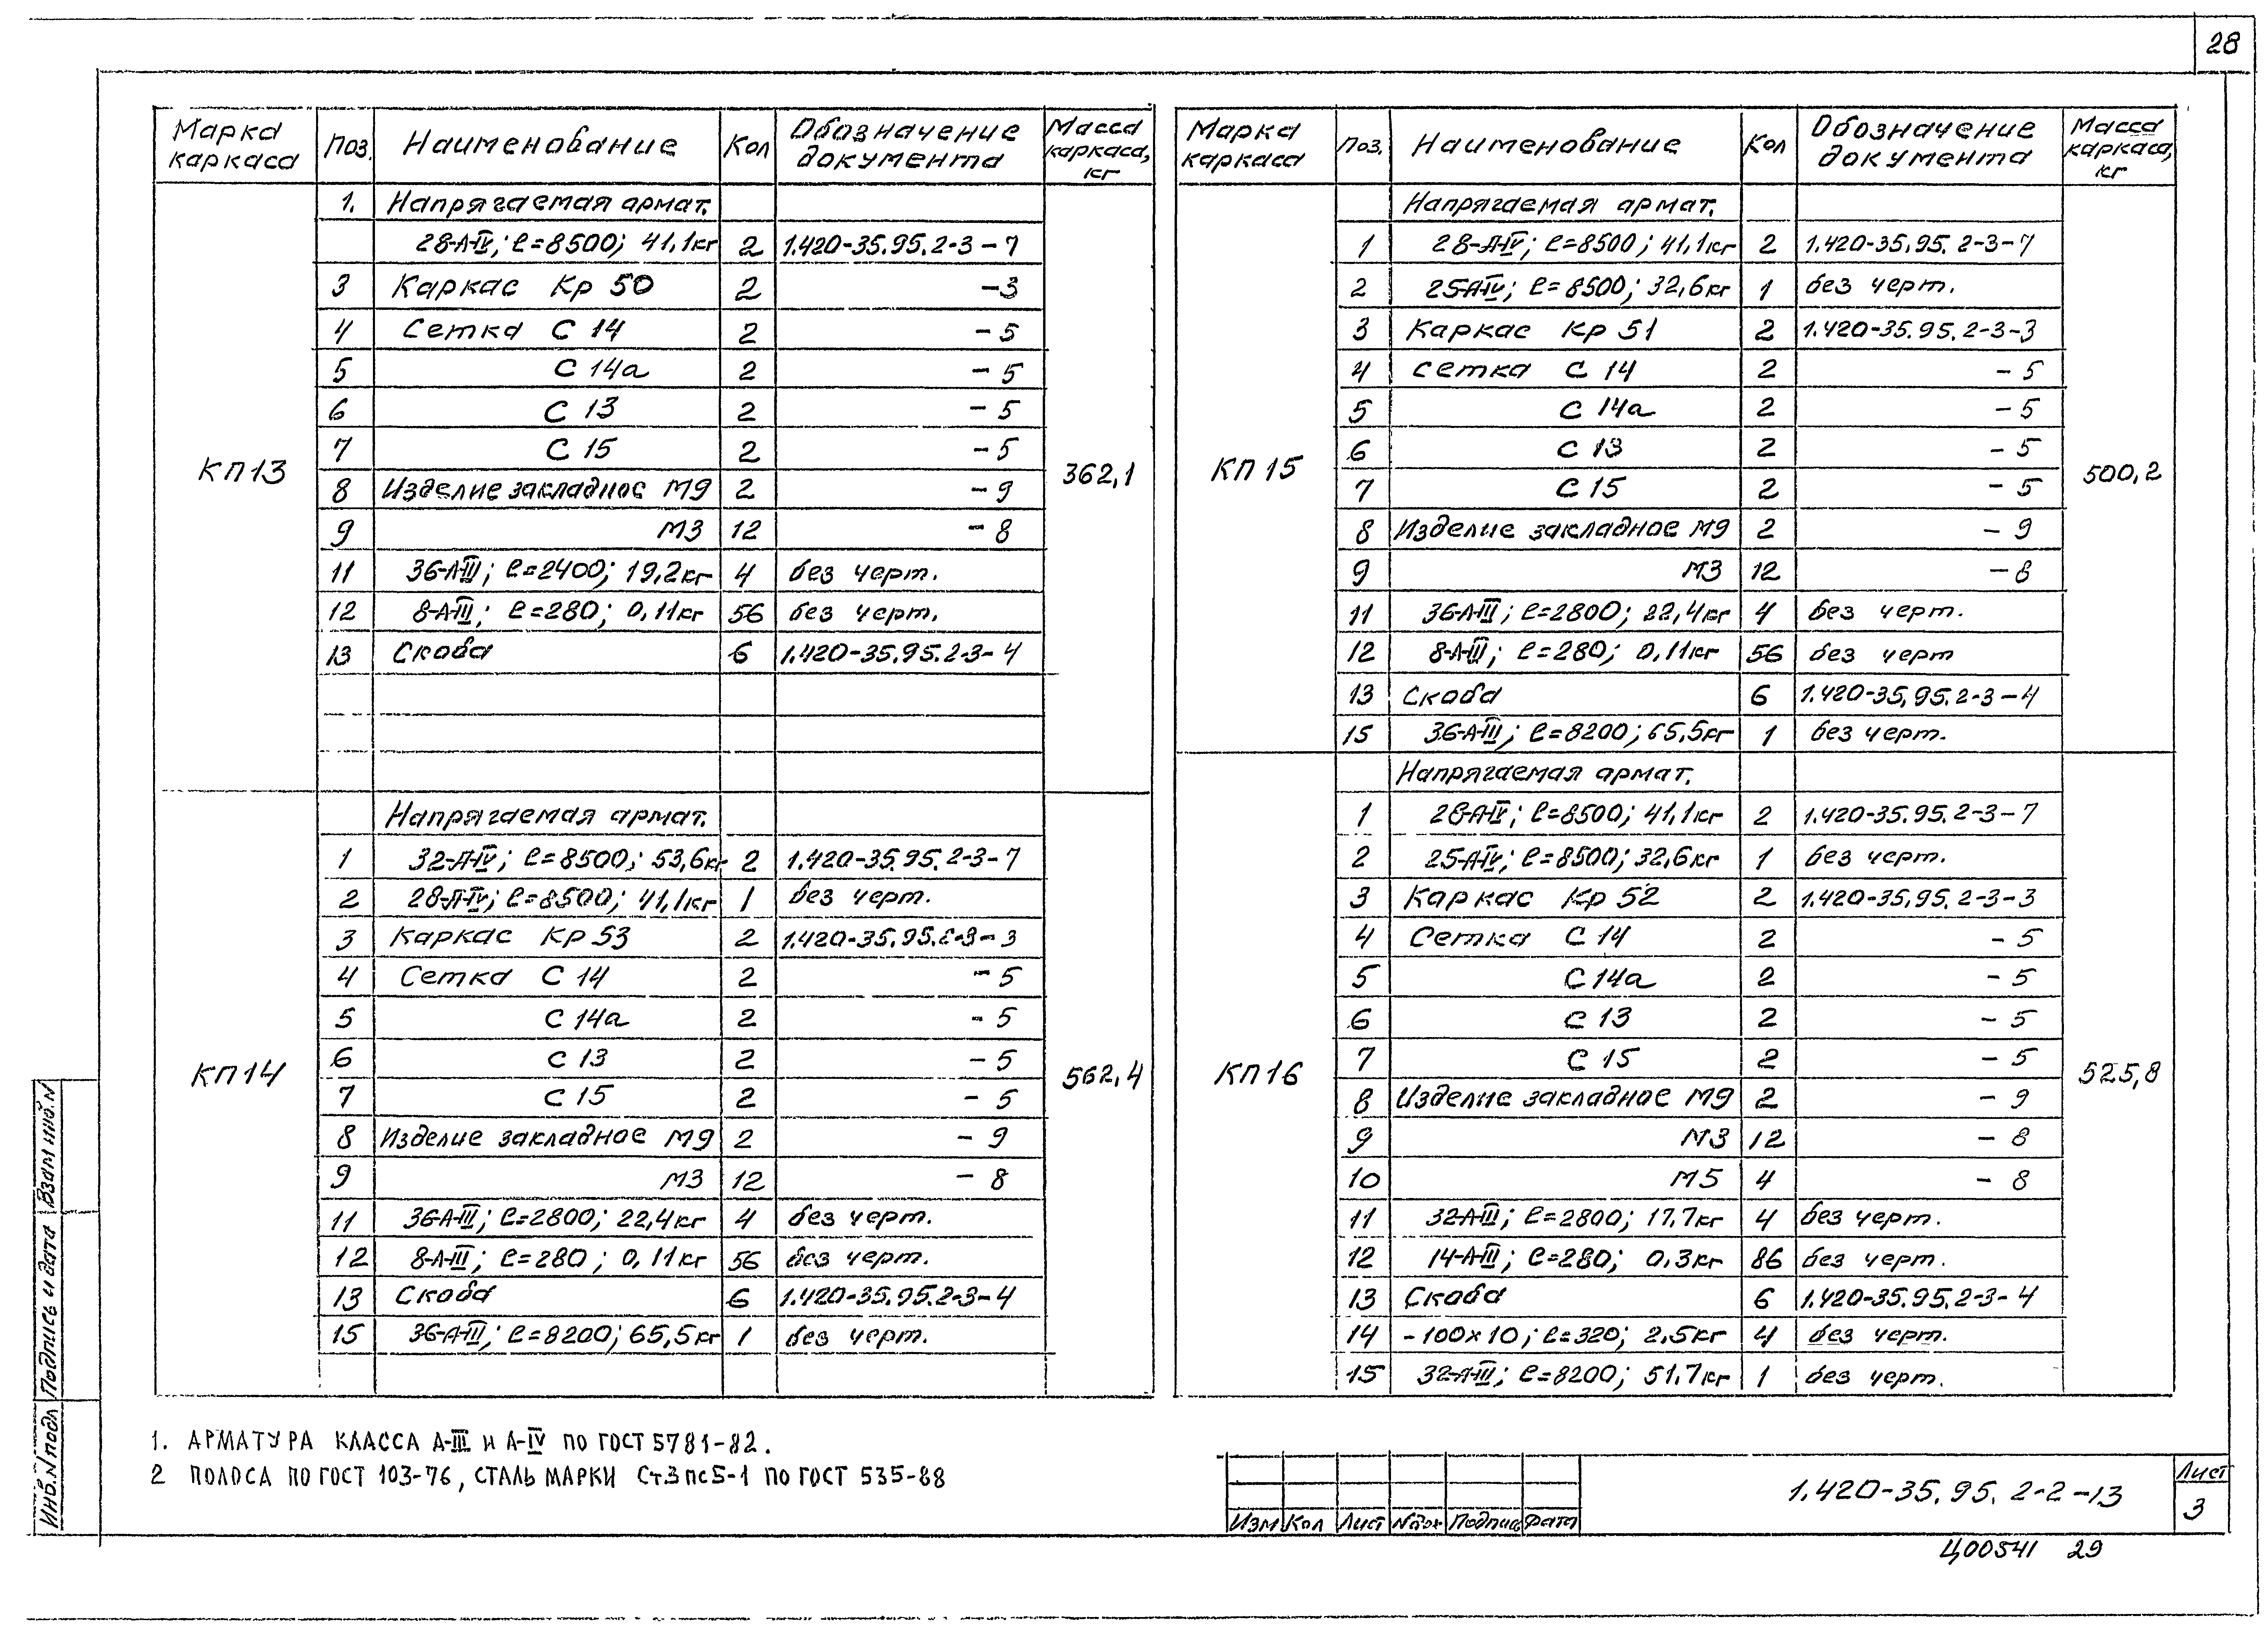 28
Марка каркаса Поз. Наименование Кол Обозначение документа Масса каркаса, кг
КП13
1. Напрягаемая армат.
28-А-IV; ℓ=8500; 41,1кг 2 1.420-35.95.2-3-7
3 Каркас Кр 50 2 -3
4 Сетка С 14 2 -5
5 С 14а 2 -5
6 С 13 2 -5
7 С 15 2 -5
8 Изделие закладное М9 2 -9
9 М3 12 -8
11 36-А-III; ℓ=2400; 19,2кг 4 без черт.
12 8-А-III; ℓ=280; 0,11кг 56 без черт.
13 Скоба 6 1.420-35.95.2-3-4
362,1
КП14
Напрягаемая армат.
1 32-А-IV; ℓ=8500; 53,6кг 2 1.420-35.95.2-3-7
2 28-А-IV; ℓ=8500; 41,1кг 1 без черт.
3 Каркас Кр 53 2 1.420-35.95.2-3-3
4 Сетка С 14 2 -5
5 С 14а 2 -5
6 С 13 2 -5
7 С 15 2 -5
8 Изделие закладное М9 2 -9
9 М3 12 -8
11 36-А-III; ℓ=2800; 22,4кг 4 без черт.
12 8-А-III; ℓ=280; 0,11кг 56 без черт.
13 Скоба 6 1.420-35.95.2-3-4
15 36-А-III; ℓ=8200; 65,5кг 1 без черт.
562,4
Марка каркаса Поз. Наименование Кол Обозначение документа Масса каркаса, кг
КП15
Напрягаемая армат.
1 28-А-IV; ℓ=8500; 41,1кг 2 1.420-35.95.2-3-7
2 25-А-IV; ℓ=8500; 32,6кг 1 без черт.
3 Каркас Кр 51 2 1.420-35.95.2-3-3
4 Сетка С 14 2 -5
5 С 14а 2 -5
6 С 13 2 -5
7 С 15 2 -5
8 Изделие закладное М9 2 -9
9 М3 12 -8
11 36-А-III; ℓ=2800; 22,4кг 4 без черт.
12 8-А-III; ℓ=280; 0,11кг 56 без черт
13 Скоба 6 1.420-35.95.2-3-4
15 36-А-III; ℓ=8200; 65,5кг 1 без черт.
500,2
КП16
Напрягаемая армат.
1 28-А-IV; ℓ=8500; 41,1кг 2 1.420-35.95.2-3-7
2 25-А-IV; ℓ=8500; 32,6кг 1 без черт.
3 Каркас Кр 52 2 1.420-35.95.2-3-3
4 Сетка С 14 2 -5
5 С 14а 2 -5
6 С 13 2 -5
7 С 15 2 -5
8 Изделие закладное М9 2 -9
9 М3 12 -8
10 М5 4 -8
11 32-А-III; ℓ=2800; 17,7кг 4 без черт.
12 14-А-III; ℓ=280; 0,3кг 86 без черт.
13 Скоба 6 1.420-35.95.2-3-4
14 -100×10; ℓ=320; 2,5кг 4 без черт.
15 32-А-III; ℓ=8200; 51,7кг 1 без черт.
525,8
1. АРМАТУРА КЛАССА А-III И А-IV ПО ГОСТ 5781-82.
2 ПОЛОСА ПО ГОСТ 103-76, СТАЛЬ МАРКИ Ст3пс5-1 ПО ГОСТ 535-88
Изм Кол Лист Nдок Подпись Дата
1.420-35.95.2-2-13
Лист
3
Ц00541 29
Инв.N подл Подпись и дата Взам инв.N